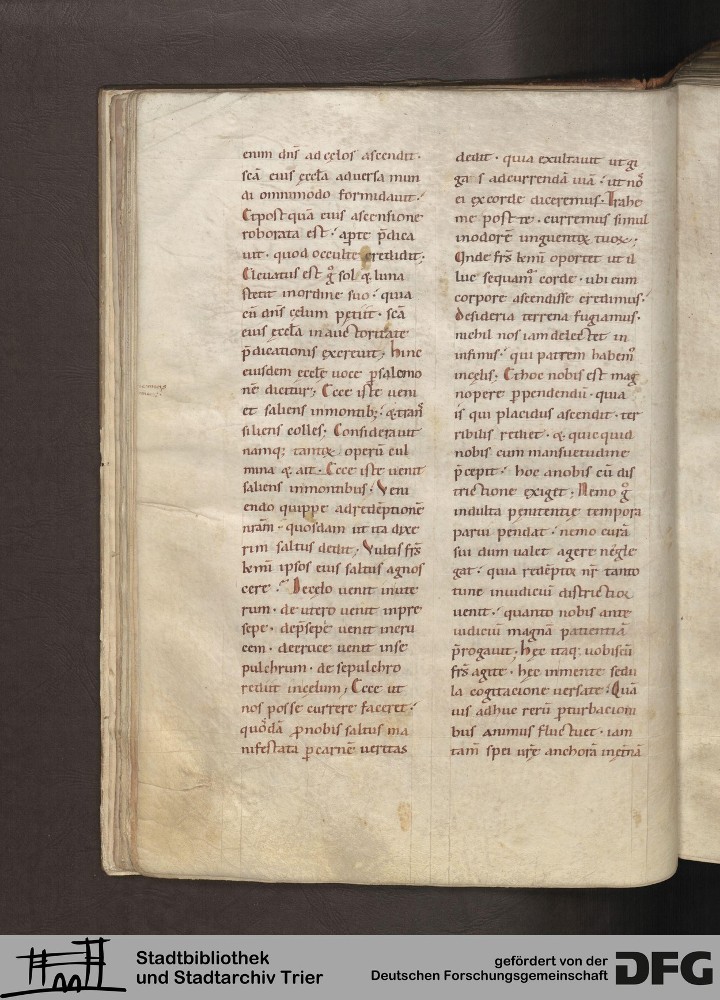 enim dn̄s ad cęlos ascendit·
scā eius ęccła aduersa mun
di omnimodo formidauit·
Et postquā eius ascensione
roborata est· apte p̄dica
uit· quod occulte credidit·
Eleuatus est g̊ sol & luna
stetit in ordine suo· quia
cū dn̄s cęlum petiit· scā
eius ęccła in auctoritate
p̄dicationis excreuit; hinc
eiusdem ęccłę uoce p salomo
nē dicitur; Ecce iste ueni
et saliens in montib;· & tran
siliens colles; Considerauit
namq; tantoꝝ operū cul
mina & ait· Ecce iste uenit
saliens in montibus· Veni
endo quippe ad redēptionē
nr̄am· quosdam ut ita dixe
rim saltus dedit; Vultis fr̄s
km̄i ipsos eius saltus agnos
cere· De celo uenit in ute
rum· de utero uenit in pre
sepe· de p̄sepe uenit in cru
cem· de cruce uenit in se
pulchrum· de sepulchro
rediit in celum; Ecce ut
nos post se currere faceret·
quosdā p nobis saltus ma
nifestata p carnē ueritas
dedit· quia exultauit ut gi
gas ad currendā uiā· ut nos
ei ex corde diceremus· Trahe
me post te· curremus simul
in odorē unguentoꝝ tuoꝝ;
Unde fr̄s km̄i oportet ut il
luc sequamur corde· ubi eum
corpore ascendisse credimus·
Desideria terrena fugiamus·
nichil nos iam delectet in
infimis· qui patrem habem᷒
in cęlis; Et hoc nobis est mag
nopere p pendendū· quia
is qui placidus ascendit· ter
ribilis rediet· & quicquid
nobis cum mansuetudine
p̄cepit· hoc a nobis cū dis
trictione exiget; Nemo g̊
indulta penitentie tempora
parui pendat· nemo curā
sui dum ualet agere negle
gat· quia redēptor nr̄ tanto
tunc in iudiciū districtior
uenit· quanto nobis ante
iudiciū magnā patientiā
p̄rogauit· hęc itaq; uobiscū
fr̄s agite· hęc in mente sedu
la cogitacione uersate· Quā
uis adhuc rerū pturbacioni
bus animus fluctuet· iam
tam̄ spei ur̄e anchorā in ęt̄nā
Stadtbibliothek
und Stadtarchiv Trier
gefördert von der
Deutschen Forschungsgemeinschaft
DFG